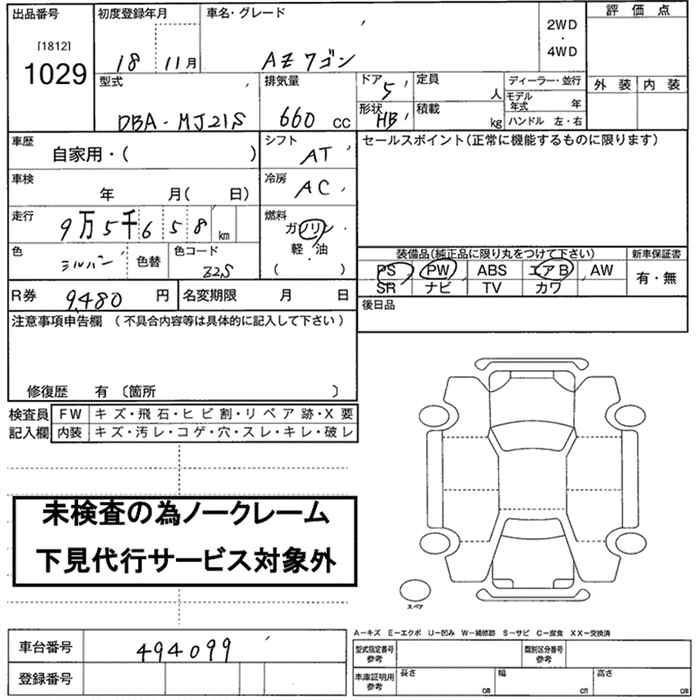 出品番号 初度登録年月 車名・グレード 評価点
[1812]
1029
18 11月 AZワゴン
2WD
・
4WD
外装 内装
型式 排気量 ドア 定員 ディーラー・並行
5 人 モデル年式 年
DBA-MJ21S 660 cc 形状 積載
HB kg ハンドル 左・右
車歴 シフト セールスポイント(正常に機能するものに限ります)
自家用・( ) AT
車検 冷房
年 月( 日) AC
走行 燃料
9万5千658 km ガソリン
軽・油
( )
色 色替 色コード
シルバー Z2S
装備品(純正品に限り丸をつけて下さい) 新車保証書
PS PW ABS エアB AW 有・無
SR ナビ TV カワ
R券 9,480 円 名変期限 月 日 後日品
注意事項申告欄 (不具合内容等は具体的に記入して下さい)
修復歴 有〔箇所 〕
検査員 FW キズ・飛石・ヒビ割・リペア跡・X要
記入欄 内装 キズ・汚レ・コゲ・穴・スレ・キレ・破レ
未検査の為ノークレーム
下見代行サービス対象外
スペア
A-キズ E-エクボ U-凹み W-補修跡 S-サビ C-腐食 XX-交換済
車台番号 494099
登録番号
型式指定番号 参考 類別区分番号 参考
車庫証明用 参考 長さ cm 幅 cm 高さ cm